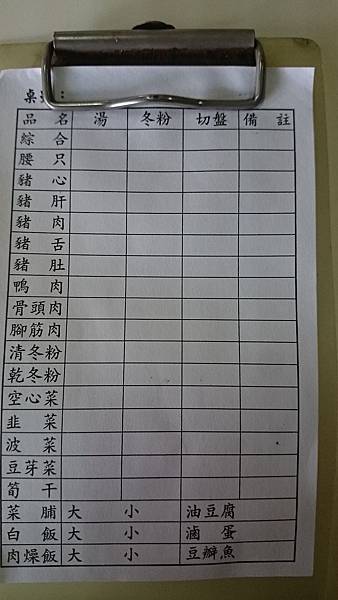 桌
品 名 湯 冬粉 切盤 備 註
綜 合
腰 只
豬 心
豬 肝
豬 肉
豬 舌
豬 肚
鴨 肉
骨頭肉
腳筋肉
清冬粉
乾冬粉
空心菜
韭 菜
波 菜
豆芽菜
筍 干
菜 脯 大 小 油豆腐
白 飯 大 小 滷 蛋
肉燥飯 大 小 豆瓣魚